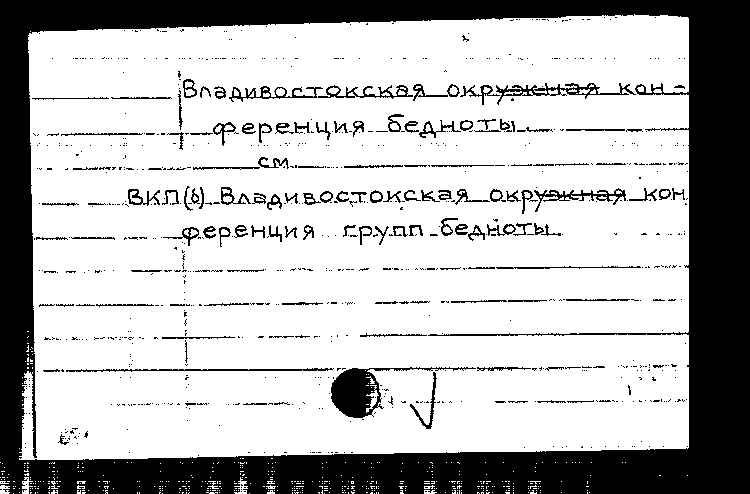 Владивостокская окружная кон-
ференция бедноты.
см
ВКП(б) Владивостокская окружная кон
ференция групп бедноты.